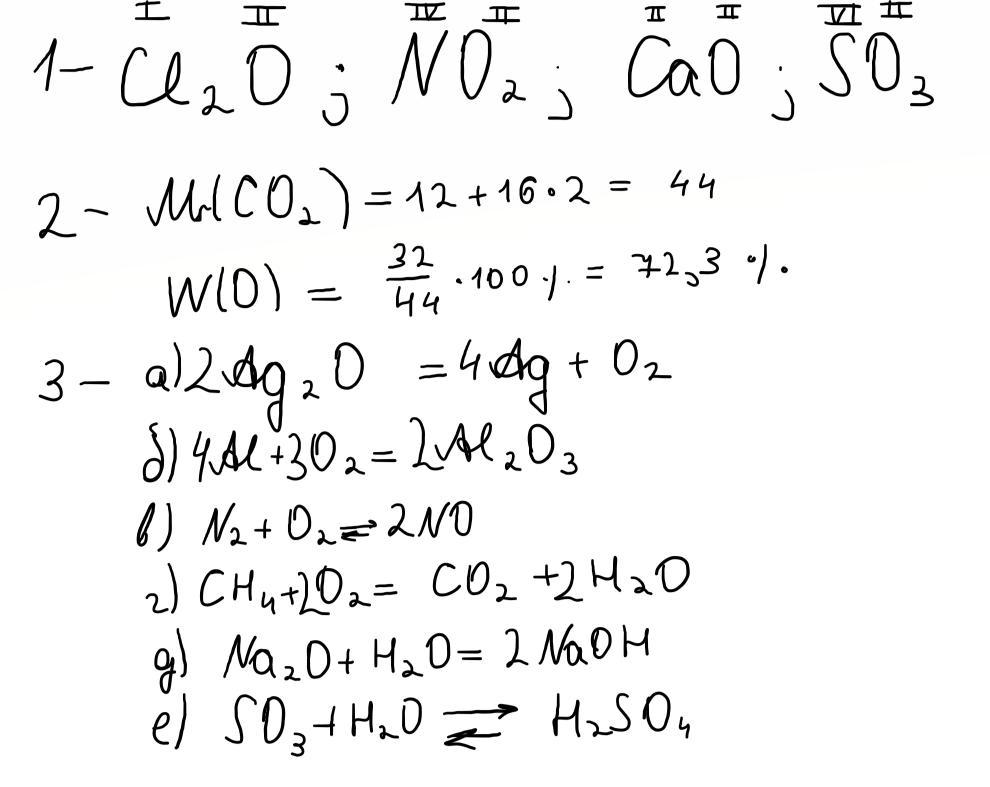 I II IV II II II VI II
1- Cl₂O ; NO₂ ; CaO ; SO₃
2- Mr(CO₂) = 12 + 16 · 2 = 44
W(O) = 32/44 · 100 % = 72,3 %.
3- а) 2Ag₂O = 4Ag + O₂
б) 4Al + 3O₂ = 2Al₂O₃
в) N₂ + O₂ ⇌ 2NO
г) CH₄ + 2O₂ = CO₂ + 2H₂O
д) Na₂O + H₂O = 2NaOH
е) SO₃ + H₂O ⇌ H₂SO₄